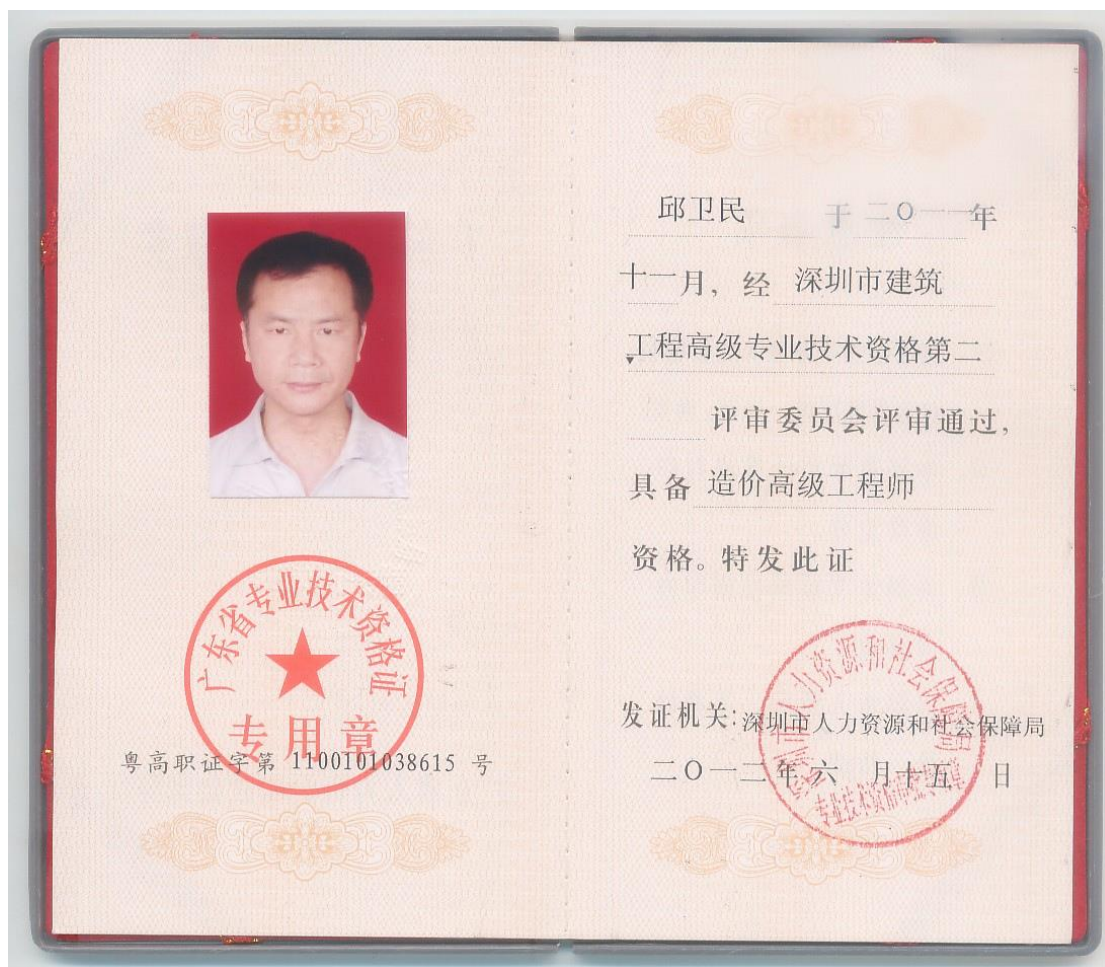 广东省专业技术资格证
专用章
粤高职证字第 1100101038615 号
邱卫民 于 二〇一一年
十一月，经 深圳市建筑
工程高级专业技术资格第二
评审委员会评审通过，
具备 造价高级工程师
资格。特发此证
深圳市人力资源和社会保障局
发证机关：深圳市人力资源和社会保障局
二〇一二年六 月十五 日